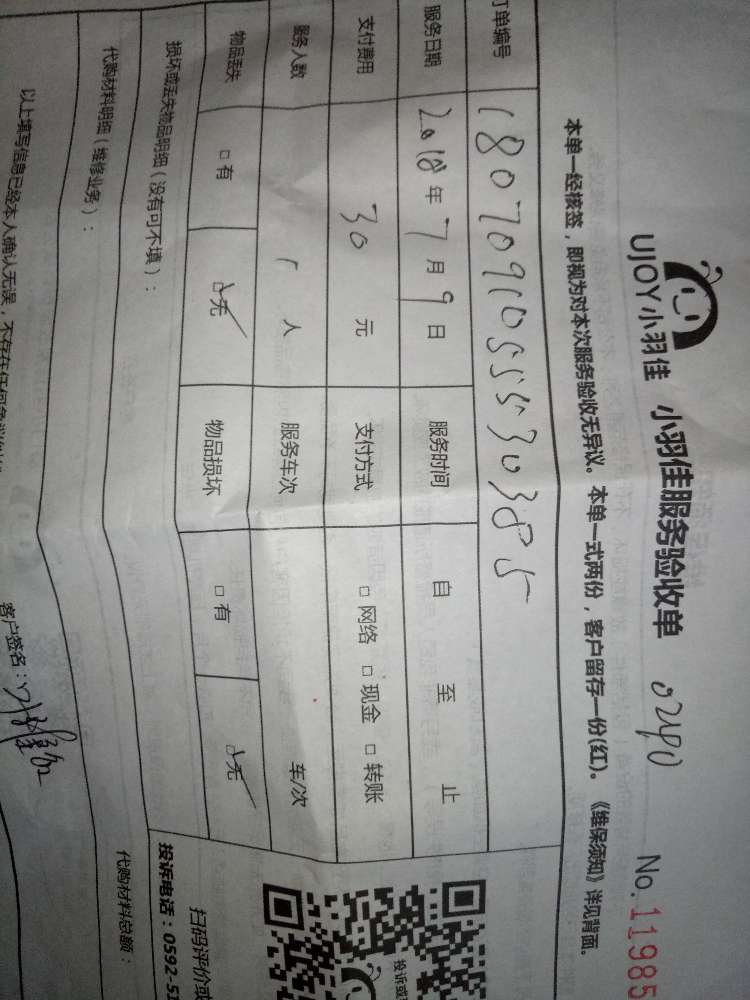 UJOY小羽佳 小羽佳服务验收单 0240 No. 11985
本单一经核签，即视为对本次服务验收无异议。本单一式两份，客户留存一份(红)。《维保须知》详见背面。
订单编号 1807091055530385
服务日期 2018年7月9日 服务时间 自 至 止
支付费用 30元 支付方式 □网络 □现金 □转账
服务人数 人 服务车次 车/次
物品丢失 □有 ☑无 物品损坏 □有 ☑无
损坏或丢失物品明细（没有可不填）：
代购材料明细（维修业务）： 代购材料总额：
以上填写信息已经本人确认无误，不存在任何
客户签名：
扫码评价或
投诉电话：0592-51
投诉或